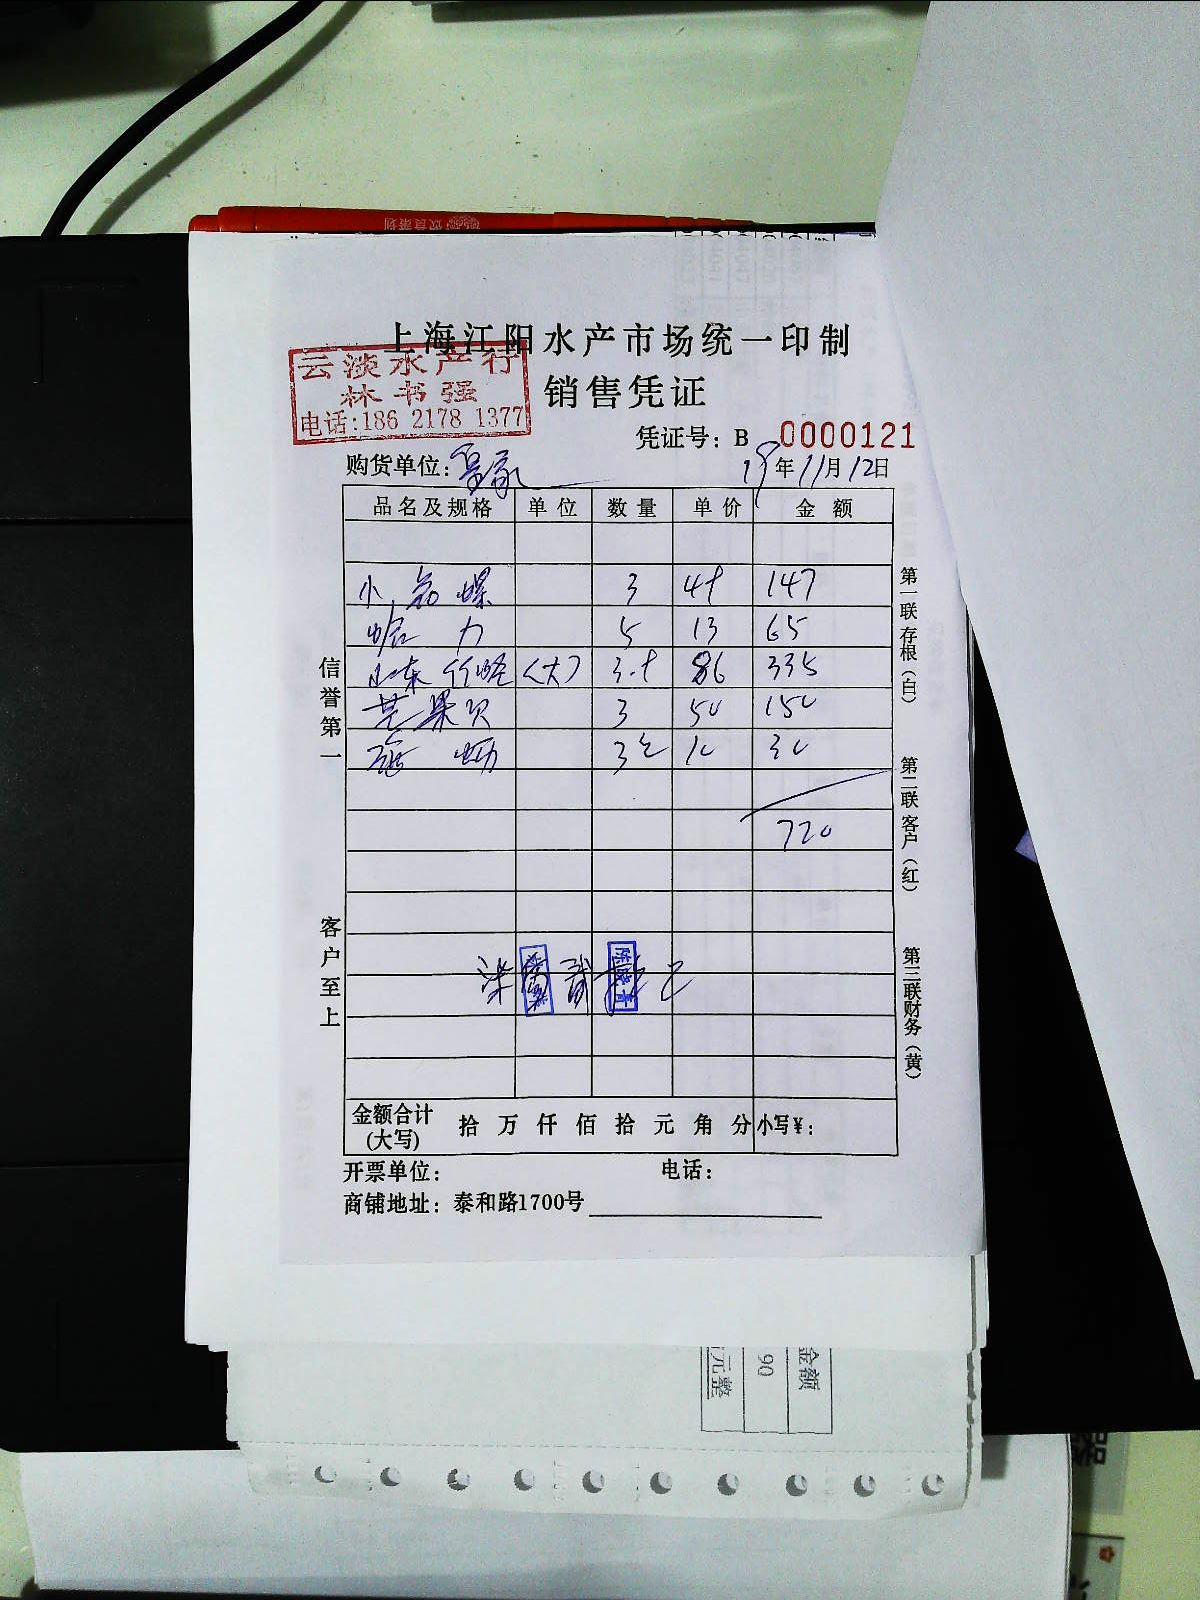 上海江阳水产市场统一印制
云淡水产行
林书强
电话:186 2178 1377
销售凭证
凭证号: B 0000121
购货单位:
19年11月12日
品名及规格 单位 数量 单价 金额
小 螺 3 49 147
蛤 力 5 13 65
山东竹蛏 (大) 3.9 86 335
芒果贝 3 50 150
3 10 30
720
信誉第一
客户至上
第一联存根(白)
第二联客户(红)
第三联财务(黄)
金额合计(大写) 拾 万 仟 佰 拾 元 角 分 小写¥:
开票单位: 电话:
商铺地址: 泰和路1700号
金额
90
元整